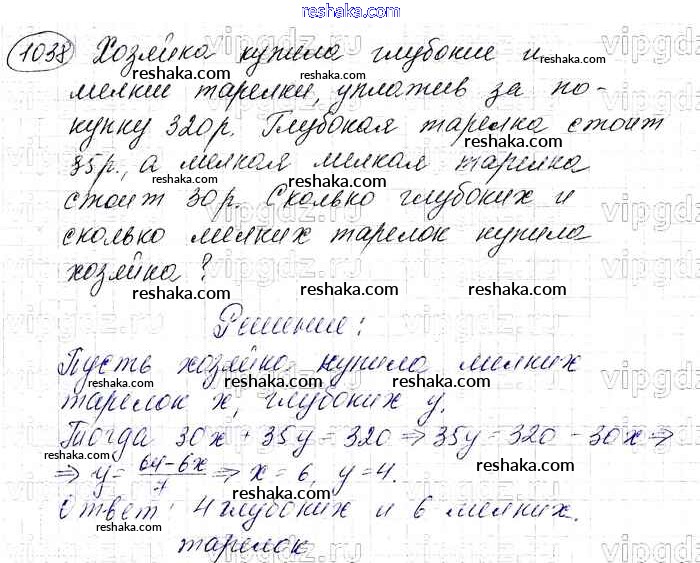 reshaka.com
1038 Хозяйка купила глубокие и reshaka.com
vipgdz.ru
reshaka.com reshaka.com
мелкие тарелки, уплатив за по-
купку 320р. Глубокая тарелка стоит
reshaka.com reshaka.com vipgdz.ru
35р., а мелкая мелкая тарелка
reshaka.com reshaka.com
стоит 30р. Сколько глубоких и
vipgdz.ru
reshaka.com reshaka.com
сколько мелких тарелок купила
vipgdz.ru
хозяйка?
reshaka.com reshaka.com
Решение:
vipgdz.ru
reshaka.com reshaka.com
Пусть хозяйка купила мелких
vipgdz.ru
тарелок x, глубоких y.
reshaka.com reshaka.com
Тогда 30x + 35y = 320 ⇒ 35y = 320 - 30x ⇒
vipgdz.ru
⇒ y = (64-6x)/7 ⇒ x = 6, y = 4.
reshaka.com reshaka.com
Ответ: 4 глубоких и 6 мелких.
vipgdz.ru
reshaka.com reshaka.com
тарелок